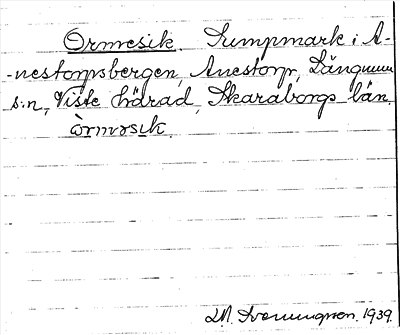 Ormesik. Sumpmark i A-
-nestorpsbergen, Anestorp, Längnum
s:n, Viste härad, Skaraborgs län.
òrməsik.
LM. Svenungsson. 1939.